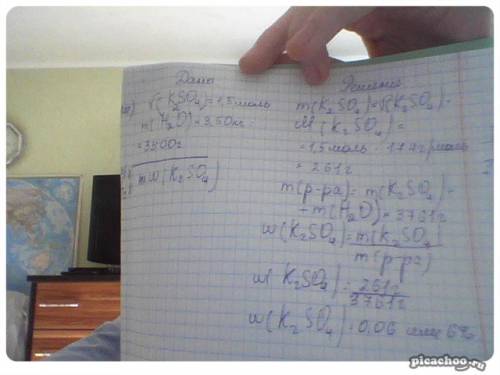 Дано
ν(K₂SO₄)=1,5моль
m(H₂O)=3,50кг=
=3500г
w(K₂SO₄)
Решение
m(K₂SO₄)=ν(K₂SO₄)·
M(K₂SO₄)=
=1,5моль·174г/моль
=261г
m(р-ра)=m(K₂SO₄)+
+m(H₂O)=3761г
w(K₂SO₄)=m(K₂SO₄)
m(р-ра)
w(K₂SO₄)=261г
3761г
w(K₂SO₄)=0,06 или 6%
picachoo.ru